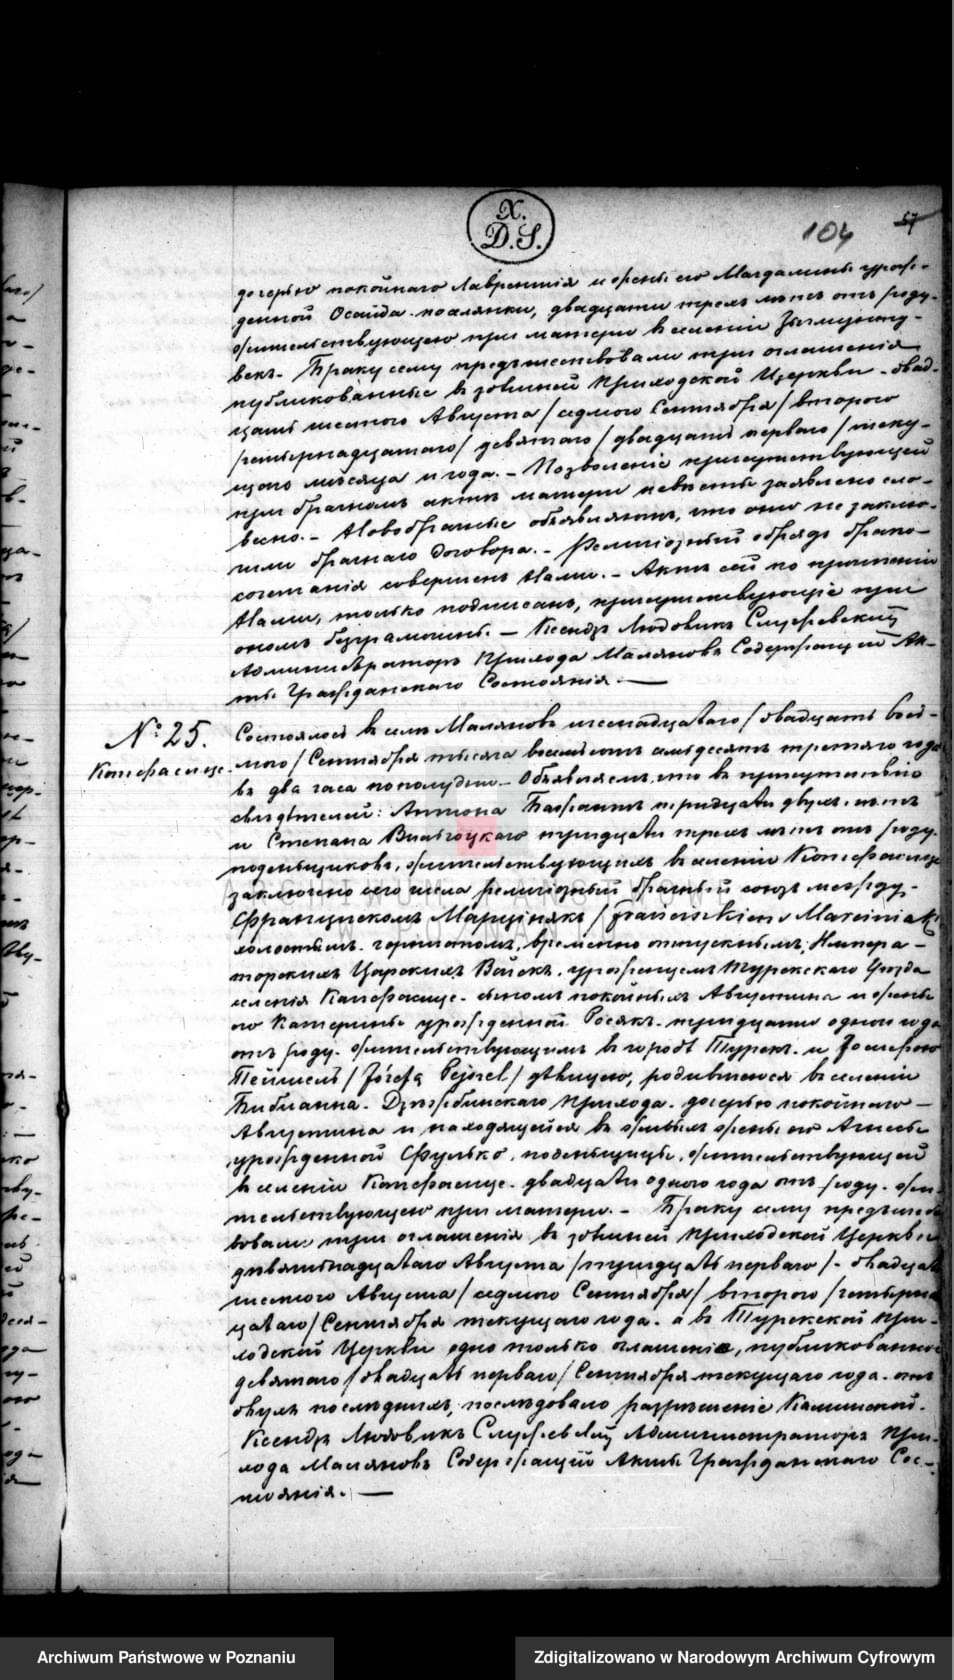 X.
D.S.
104
57
дочерью покойнаго Лаврентія и жены его Магдалины урож-
денной Осайда поселянки, двадцати трехъ лѣтъ отъ роду
жительствующею при матери въ селеніи
векъ. Браку сему предшествовали три оглашенія
публикованные въ здѣшней Приходской Церкви двад-
цать шестого Августа /седмого Сентября/ второго
/четырнадцатаго/ девятаго /двадцать перваго/ теку-
щаго мѣсяца и года. – Позволеніе присутствующей
при брачномъ актѣ матери невѣсты заявлено сло-
весно. – Новобрачные объявляютъ, что они не заклю-
чили брачнаго договора. – Религіозный обрядъ брако-
сочетанія совершенъ Нами. – Актъ сей по прочтеніи
Нами, только подписанъ, присутствующіе при
ономъ безграмотны. – Ксендзъ Людовикъ
Администраторъ Прихода Маляновъ Содержащій Ак-
ты Гражданскаго Состоянія. —
№ 25.
Состоялось въ селѣ Маляновъ шестнадцатаго /двадцать вось-
маго/ Сентября тысяча восемьсотъ семьдесятъ третьяго года
въ два часа пополудни. Объявляемъ, что въ присутствіи
свидѣтелей: Антона тридцати двухъ лѣтъ
и Степана тридцати трехъ лѣтъ отъ роду
поденьщиковъ, жительствующихъ въ селеніи
заключено сего числа религіозный брачный союзъ между
Францискомъ Марциняkъ /Franciszkiem Marciniak/
холостымъ, временно отпускнымъ, Импера-
торскихъ Царскихъ Войскъ, урожденцемъ Турекскаго Уѣзда
селенія сыномъ покойныхъ Августина и жены
его Катерины урожденной Росякъ тридцати одного года
отъ роду жительствующимъ въ городѣ Турекъ и Іозефою
/Józefą Pejsel/ дѣвицею, родившеюся въ селеніи
Бибіанна Прихода дочерью покойнаго –
Августина и находящейся въ живыхъ жены его Агнесы
урожденной Фулько, поденьщицы, жительствующей
въ селеніи двадцати одного года отъ роду жи-
тельствующею при матери. – Браку сему предшество
вовали три оглашенія въ здѣшней Приходской Церкви
девятнадцатаго Августа /тридцать перваго/ двадцать
шестого Августа /седмого Сентября/ второго /четырна
цатаго/ Сентября текущаго года, а въ Турекской При-
ходской Церкви одно только оглашеніе, публикованное
девятаго /двадцать перваго/ Сентября текущаго года отъ
двухъ послѣднихъ, послѣдовало разрѣшеніе
Ксендзъ Людовикъ Администраторъ При-
хода Маляновъ Содержащій Акты Гражданскаго Сос-
тоянія. —
Archiwum Państwowe w Poznaniu
Zdigitalizowano w Narodowym Archiwum Cyfrowym